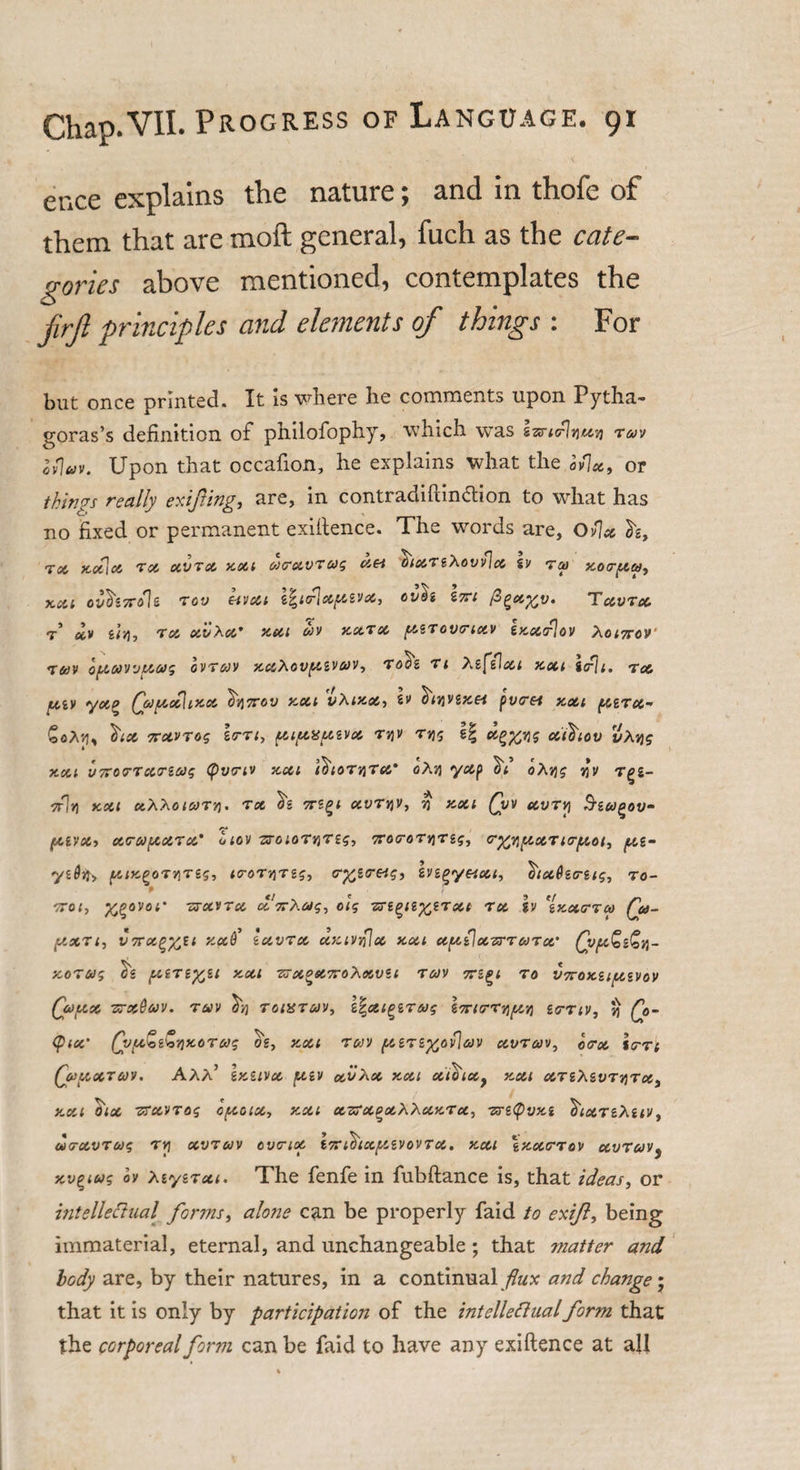 Chap. VII. PROGRESS OF LANGUAGE. 91
ence explains the nature; and in thoſe of
them that are moſt general, ſuch as the cate-
gories above mentioned, contemplates the
firſt principles and elements of things: For
but once printed. It is where he comments upon Pytha-
goras's definition of philoſophy, which was ἐπιστημη των
ὀντων. Upon that occaſion, he explains what the ὀντα, or
things really exiſting, are, in contradiſtinction to what has
no fixed or permanent exiſtence. The words are, Οντα δε,
τα κατα τα αὐτα και ὡσαυτως ἀει διατελουντα ἐν τῳ κοσμῳ,
και οὐδεποτε του ειναι ἐξισταμενα, οὐδε ἐπι βραχυ. Ταυτα
τ' ἀν εἰη, τα αὐλα· και ὡν κατα μετουσιαν ἑκαστον λοιπον
των ὁμωνυμως ὀντων καλουμενων, τοδε τι λεγεται και ἐστι. τα
μεν γαρ ϛωματικα δηπου και ὑλικα, ἐν διηνεκει ρυσει και μετα-
βολῃ, δια παντος ἐστι, μιμουμενα την της ἐξ ἀρχης αἰδιου ὑλης
και ὑποστασεως φυσιν και ἰδιοτητα· ὁλη γαρ δι' ὁλης ἠν τρε-
πτη και ἀλλοιωτη. τα δε περι αὐτην, ἠ και ϛυν αὐτῃ θεωρου-
μενα, ἀσωματα· ὁιον ποιοτητες, ποσοτητες, σχηματισμοι, με-
γεθη, μικροτητες, ἰσοτητες, σχεσεις, ἐνεργειαι, διαθεσεις, το-
ποι, χρονοι· παντα ἁπλως, οἱς περιεχεται τα ἐν ἑκαστῳ ϛω-
ματι, ὑπαρχει καθ' ἑαυτα ἀκινητα και ἀμεταπτωτα· ϛυμβεβη-
κοτως δε μετεχει και παραπολαυει των περι το ὑποκειμενον
ϛωμα παθων. των δη τοιουτων, ἐξαιρετως ἐπιστημη ἐστιν, ἡ ϛο-
φια· ϛυμβεβηκοτως δε, και των μετεχοντων αὐτων, ὁσα ἐστι
ϛωματων. Ἀλλ' ἐκεινα μεν αὐλα και αἰδια, και ἀτελευτητα,
και δια παντος ὁμοια, και ἀπαραλλακτα, πεφυκε διατελειν,
ὡσαυτως τῃ αὐτων οὐσιᾳ ἐπιδιαμενοντα. και ἑκαστον αὐτων,
κυριως ὀν λεγεται. The ſenſe in ſubſtance is, that ideas, or
intellectual forms, alone can be properly ſaid to exiſt, being
immaterial, eternal, and unchangeable; that matter and
body are, by their natures, in a continual flux and change;
that it is only by participation of the intellectual form that
the corporeal form can be ſaid to have any exiſtence at all